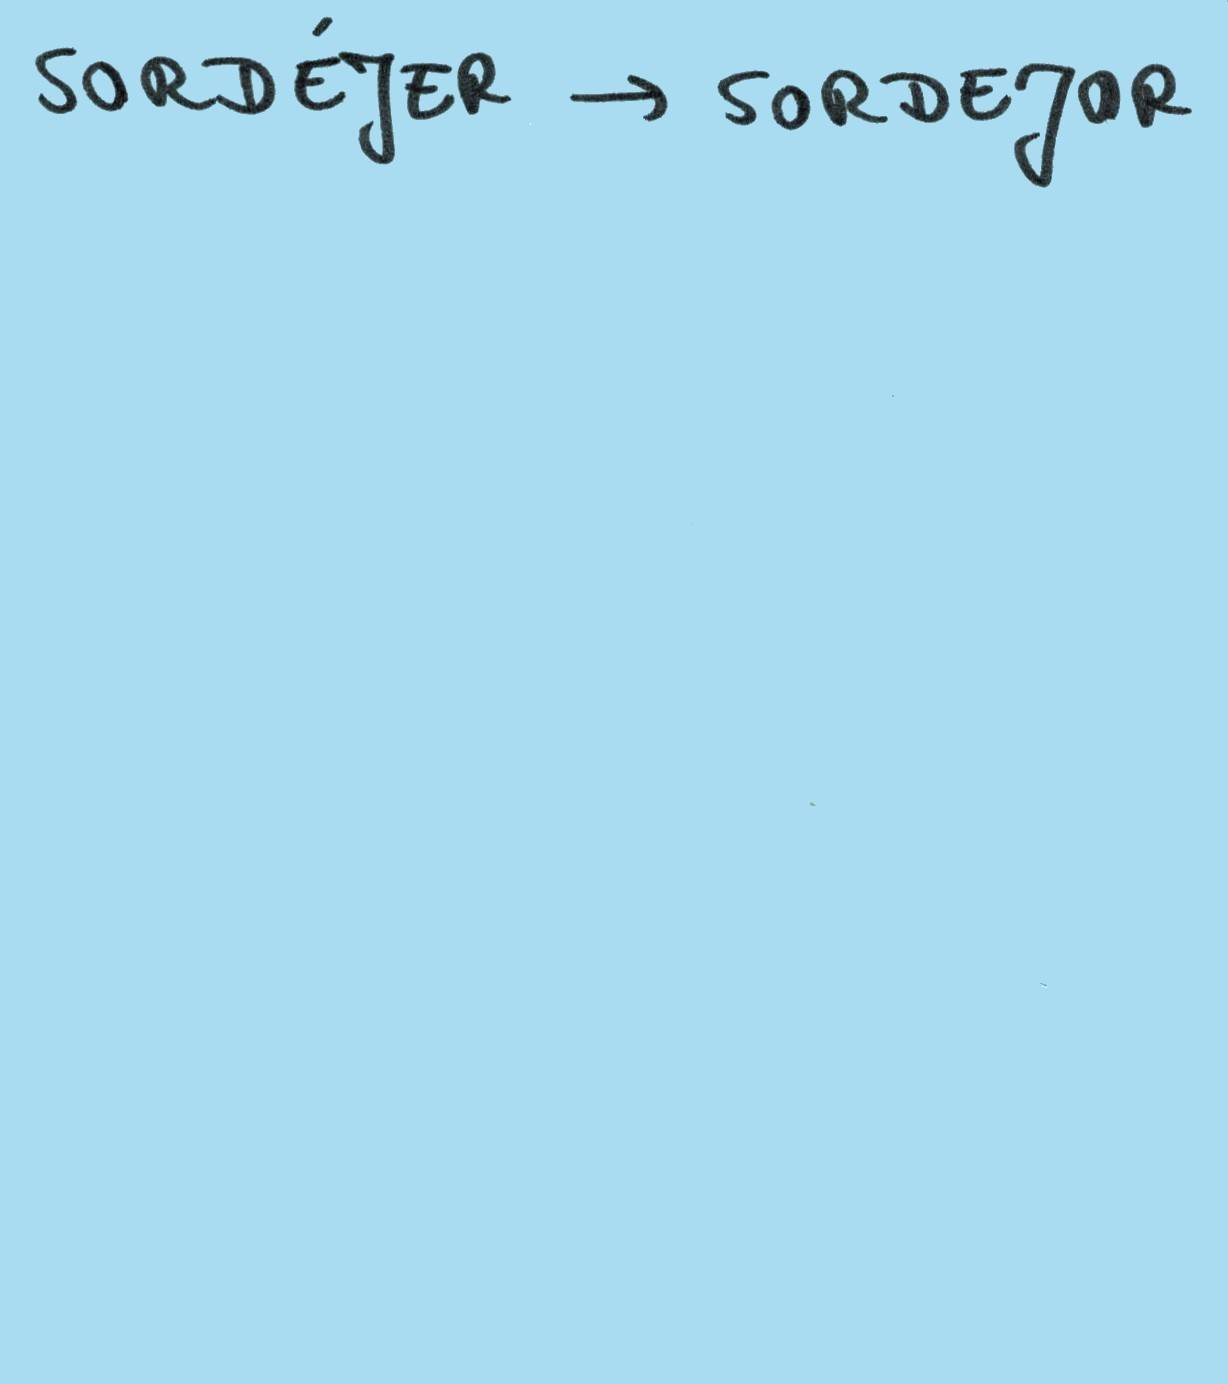 SORDÉJER → SORDEJOR